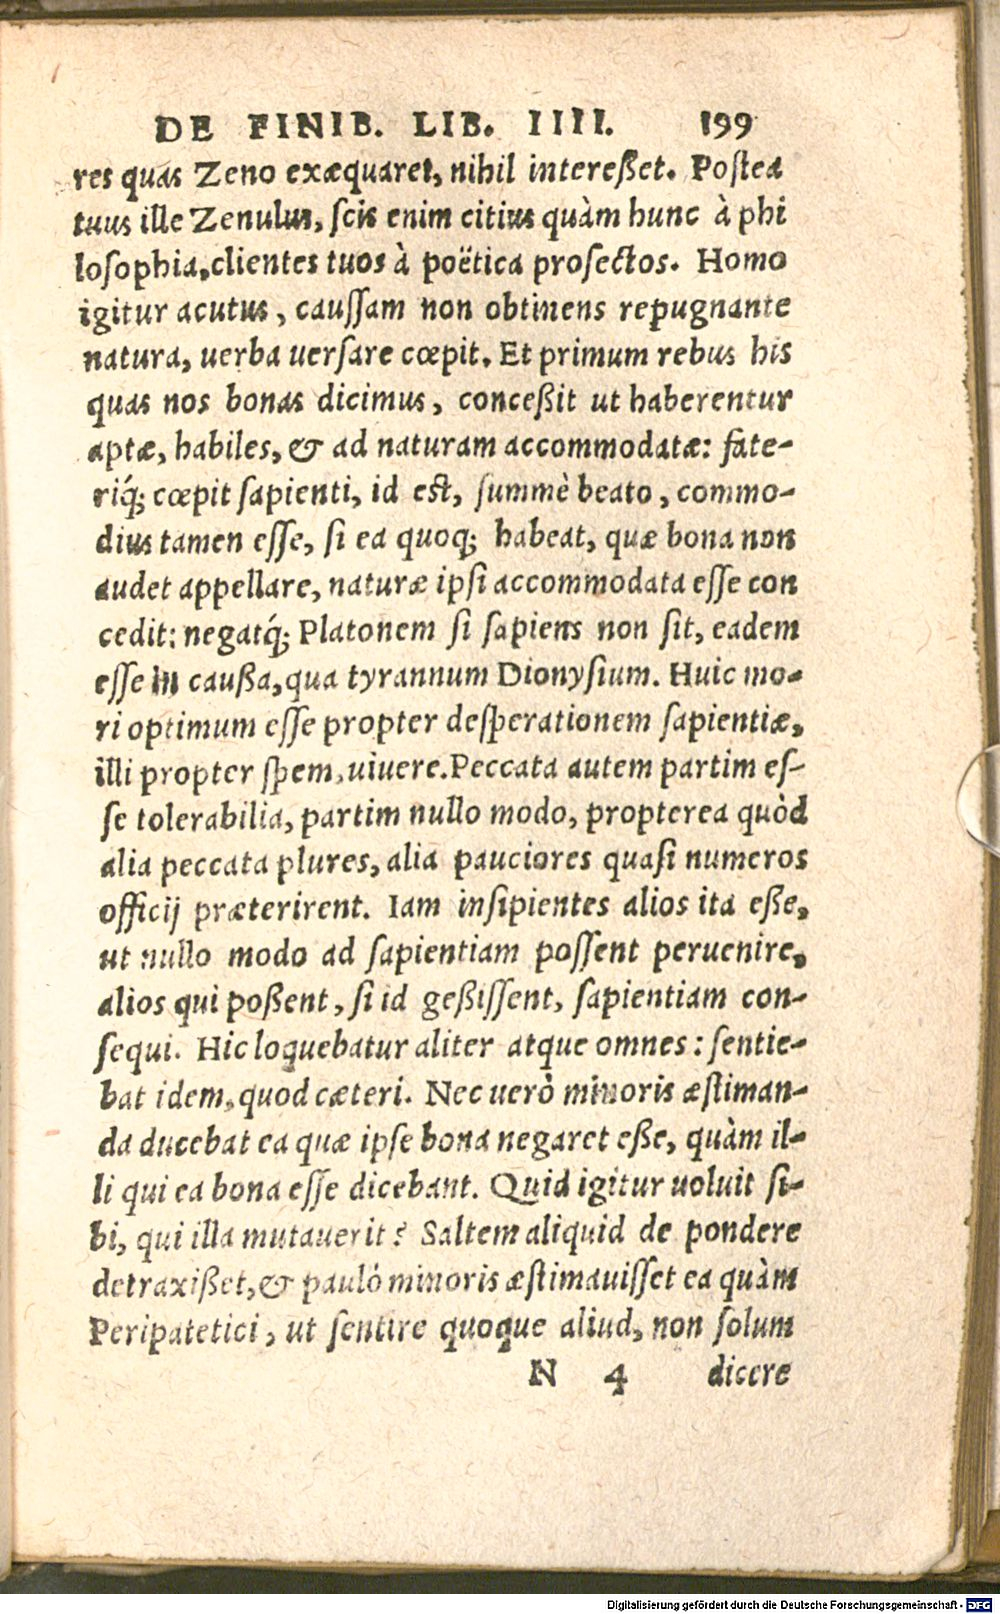 DE FINIB. LIB. IIII. 199
res quas Zeno exæquaret, nihil intereßet. Postea
tuus ille Zenulus, scis enim citius quàm hunc à phi
losophia, clientes tuos à poëtica profectos. Homo
igitur acutus, caussam non obtinens repugnante
natura, uerba uersare cœpit. Et primum rebus his
quas nos bonas dicimus, conceßit ut haberentur
aptæ, habiles, & ad naturam accommodatæ: fate-
riq́; cœpit sapienti, id est, summè beato, commo-
dius tamen esse, si ea quoq; habeat, quæ bona non
audet appellare, naturæ ipsi accommodata esse con
cedit: negatq́; Platonem si sapiens non sit, eadem
esse in caußa, qua tyrannum Dionysium. Huic mo-
ri optimum esse propter desperationem sapientiæ,
illi propter spem, uiuere. Peccata autem partim es-
se tolerabilia, partim nullo modo, propterea quòd
alia peccata plures, alia pauciores quasi numeros
officij præterirent. Iam insipientes alios ita eße,
ut nullo modo ad sapientiam possent peruenire,
alios qui poßent, si id geßissent, sapientiam con-
sequi. Hic loquebatur aliter atque omnes: sentie-
bat idem, quod cæteri. Nec uerò minoris æstiman-
da ducebat ea quæ ipse bona negaret eße, quàm il-
li qui ea bona esse dicebant. Quid igitur uoluit si-
bi, qui illa mutauerit? Saltem aliquid de pondere
detraxißet, & pauló minoris æstimauisset ea quàm
Peripatetici, ut sentire quoque aliud, non solum
N 4 dicere
Digitalisierung gefördert durch die Deutsche Forschungsgemeinschaft - DFG